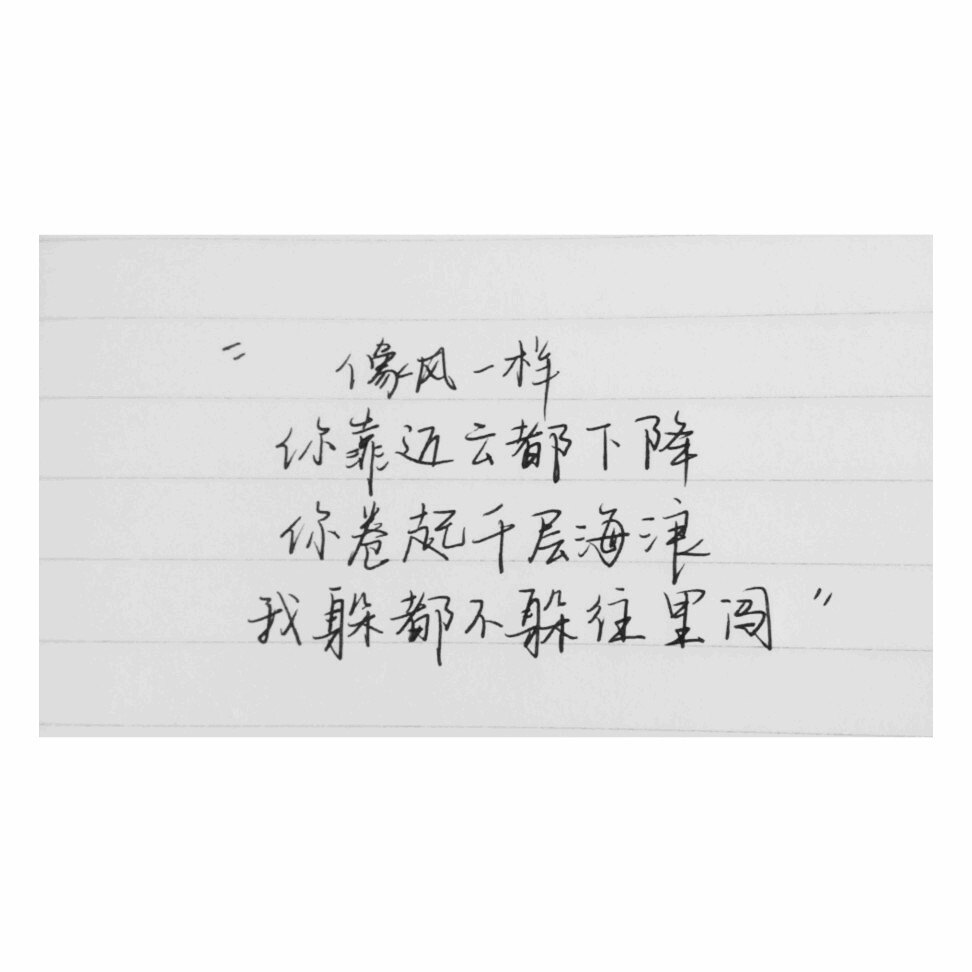 “ 像风一样
你靠近云都下降
你卷起千层海浪
我躲都不躲往里闯 ”